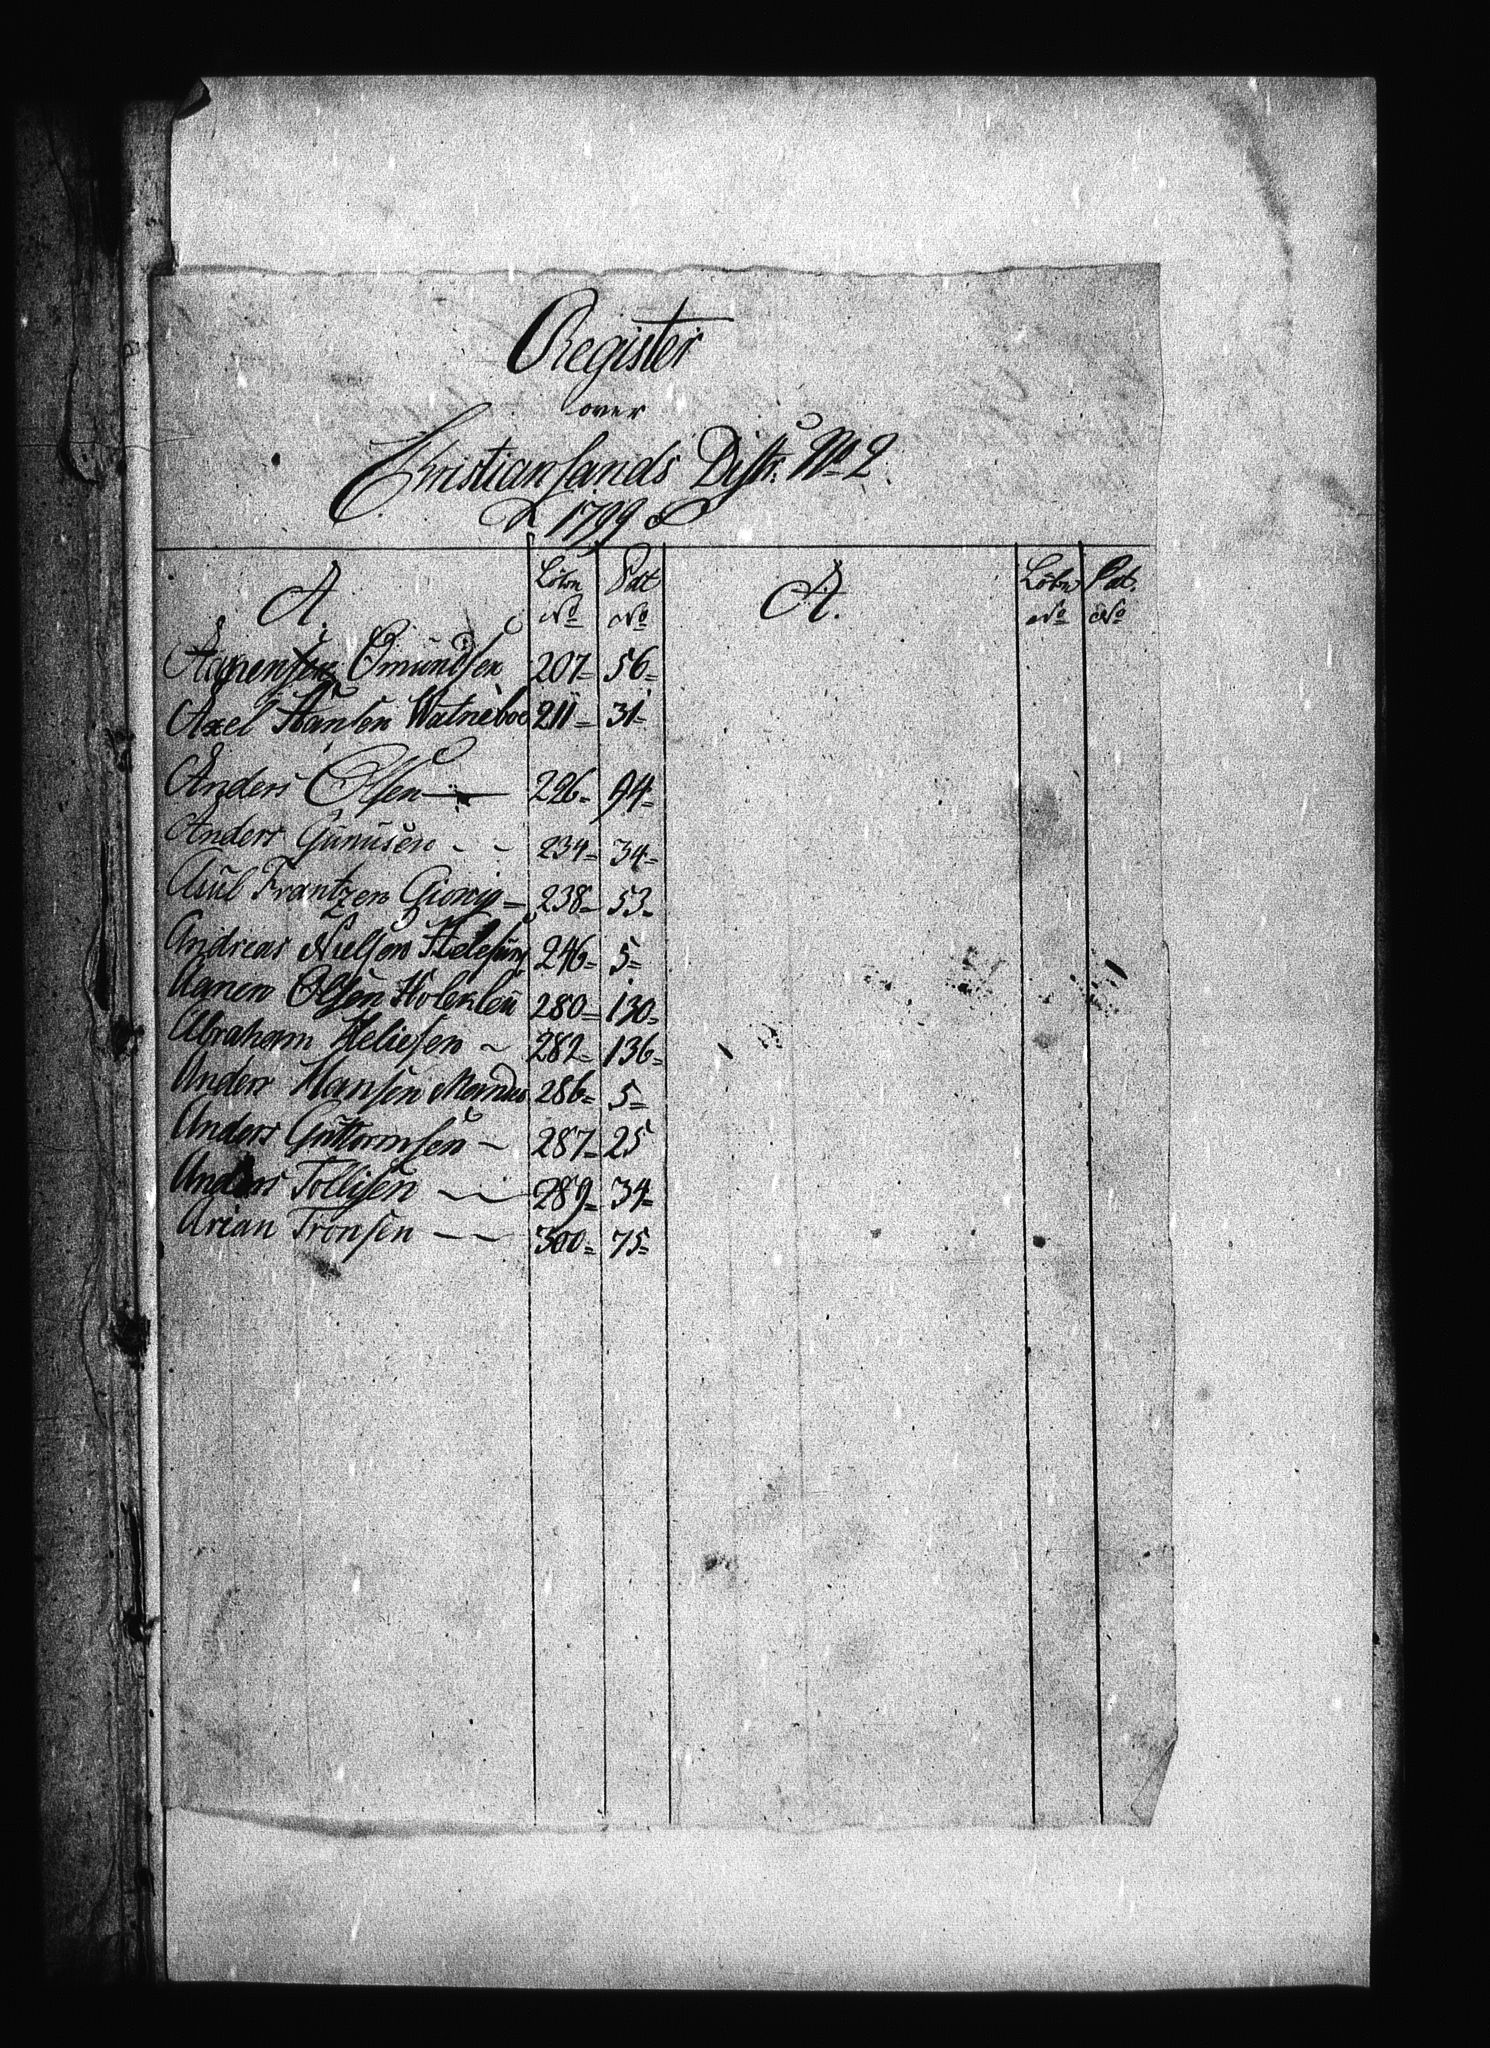 Register
over
Christiansands Distr. No 2.
1799
A. Löbe No Pat No A. Löbe No Pat. No
Omundsen 207 56
Axel Hansen Watneboe 211 31
Anders Olsen 226 94
Anders Gunnsen 234 34
Aub Frantzen Giorig 238 53
Andreas Nielsen 246 5
Agnen Olsen Holenleu 280 130
Abraham Heliesen 282 136
Anders Hansen Mandes 286 5
Anders Guttormsen 287 25
Anders Tollisen 289 34
Arian Tronsen 300 75